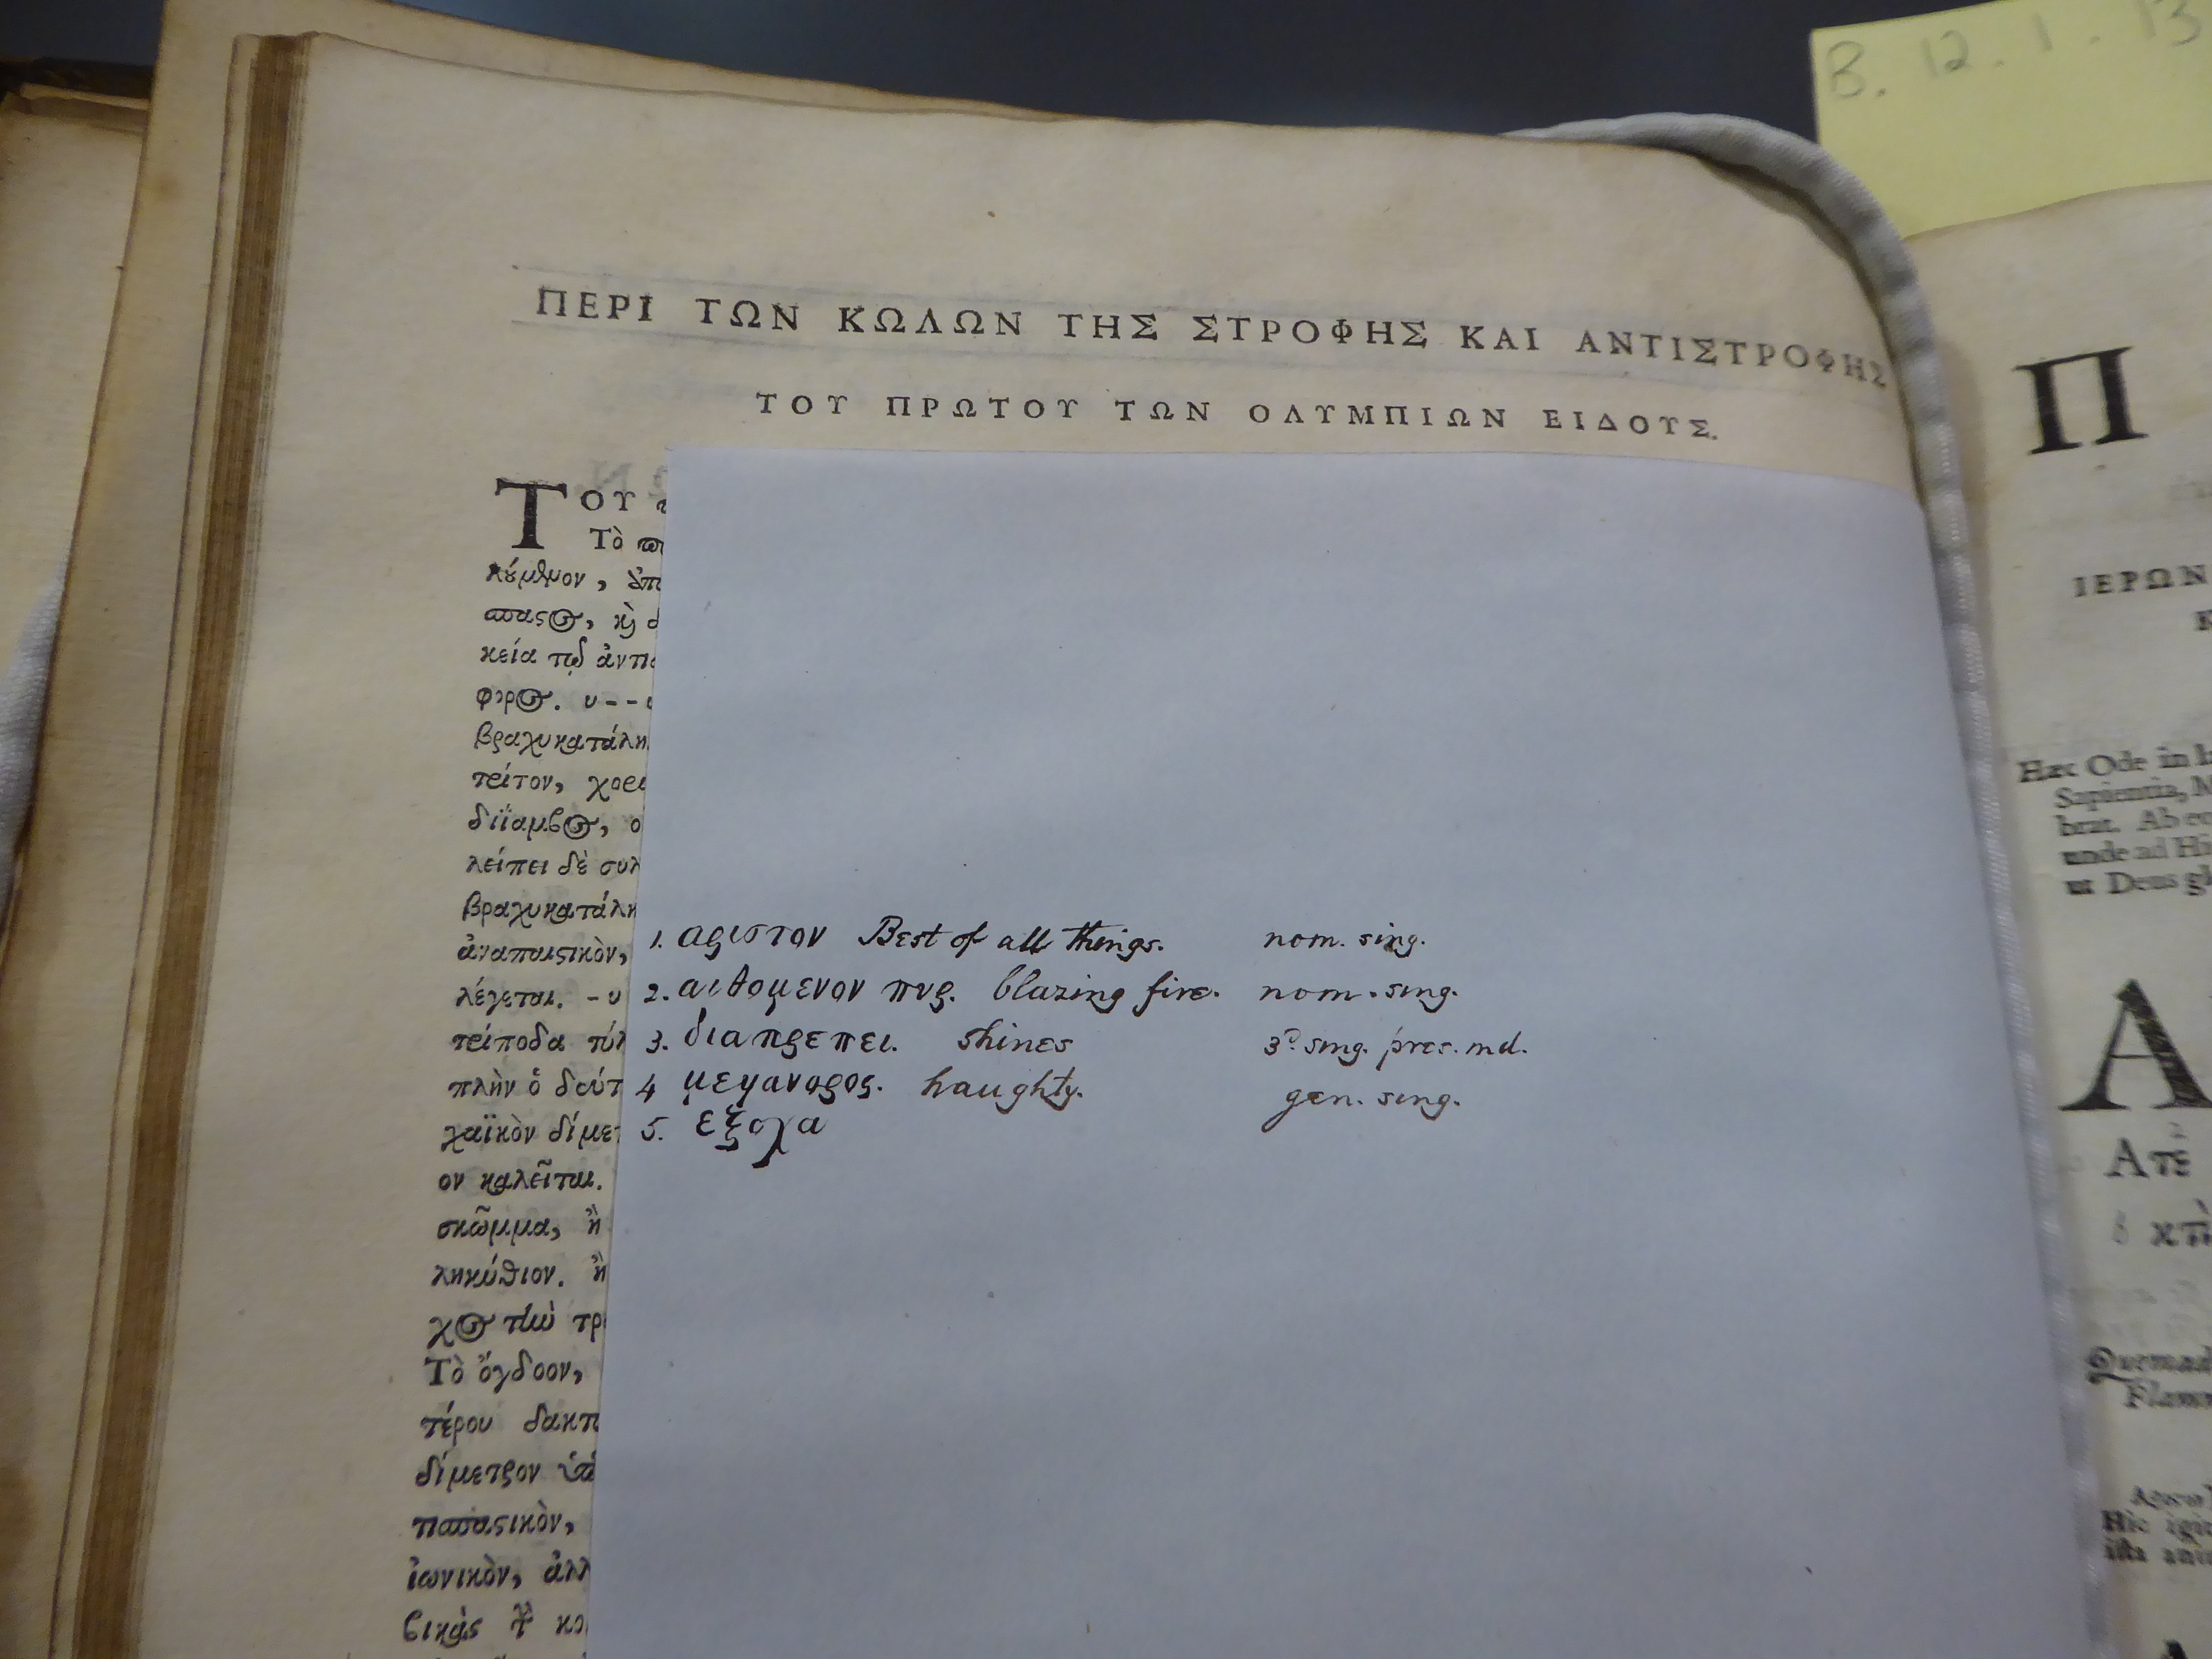 B. 12. 1. 13
ΠΕΡΙ ΤΩΝ ΚΩΛΩΝ ΤΗΣ ΣΤΡΟΦΗΣ ΚΑΙ ΑΝΤΙΣΤΡΟΦΗΣ
ΤΟΥ ΠΡΩΤΟΥ ΤΩΝ ΟΛΥΜΠΙΩΝ ΕΙΔΟΥΣ.
ΤΟΥ
Τὸ
κείᾳ
βραχυκατάλη
τρίτον, χορι
διΐαμβος, ο
λείπει δὲ συλ
βραχυκατάλη
ἀναπαιστικὸν,
λέγεται. - υ
τρίποδα
πλὴν ὁ
χαϊκὸν δίμετ
ον καλεῖται.
σκῶμμα, ἢ
ληκύθιον. ἢ
Τὸ ὄγδοον,
τέρου δακτ
δίμετρον
ἰωνικὸν, ἀλλ
1. αριστον Best of all things. nom. sing.
2. αιθομενον πυρ. blazing fire. nom. sing.
3. διαπρεπει. shines 3d sing. pres. ind.
4 μεγανορος. haughty. gen. sing.
5. εξοχα
Π
ΙΕΡΩΝ
Κ
Hæc Ode in
Sapientia, M
brat. Ab eo
unde ad Hi
ut Deus gl
Α
Ατε
Quemad
Flamm
Hic igit
ista